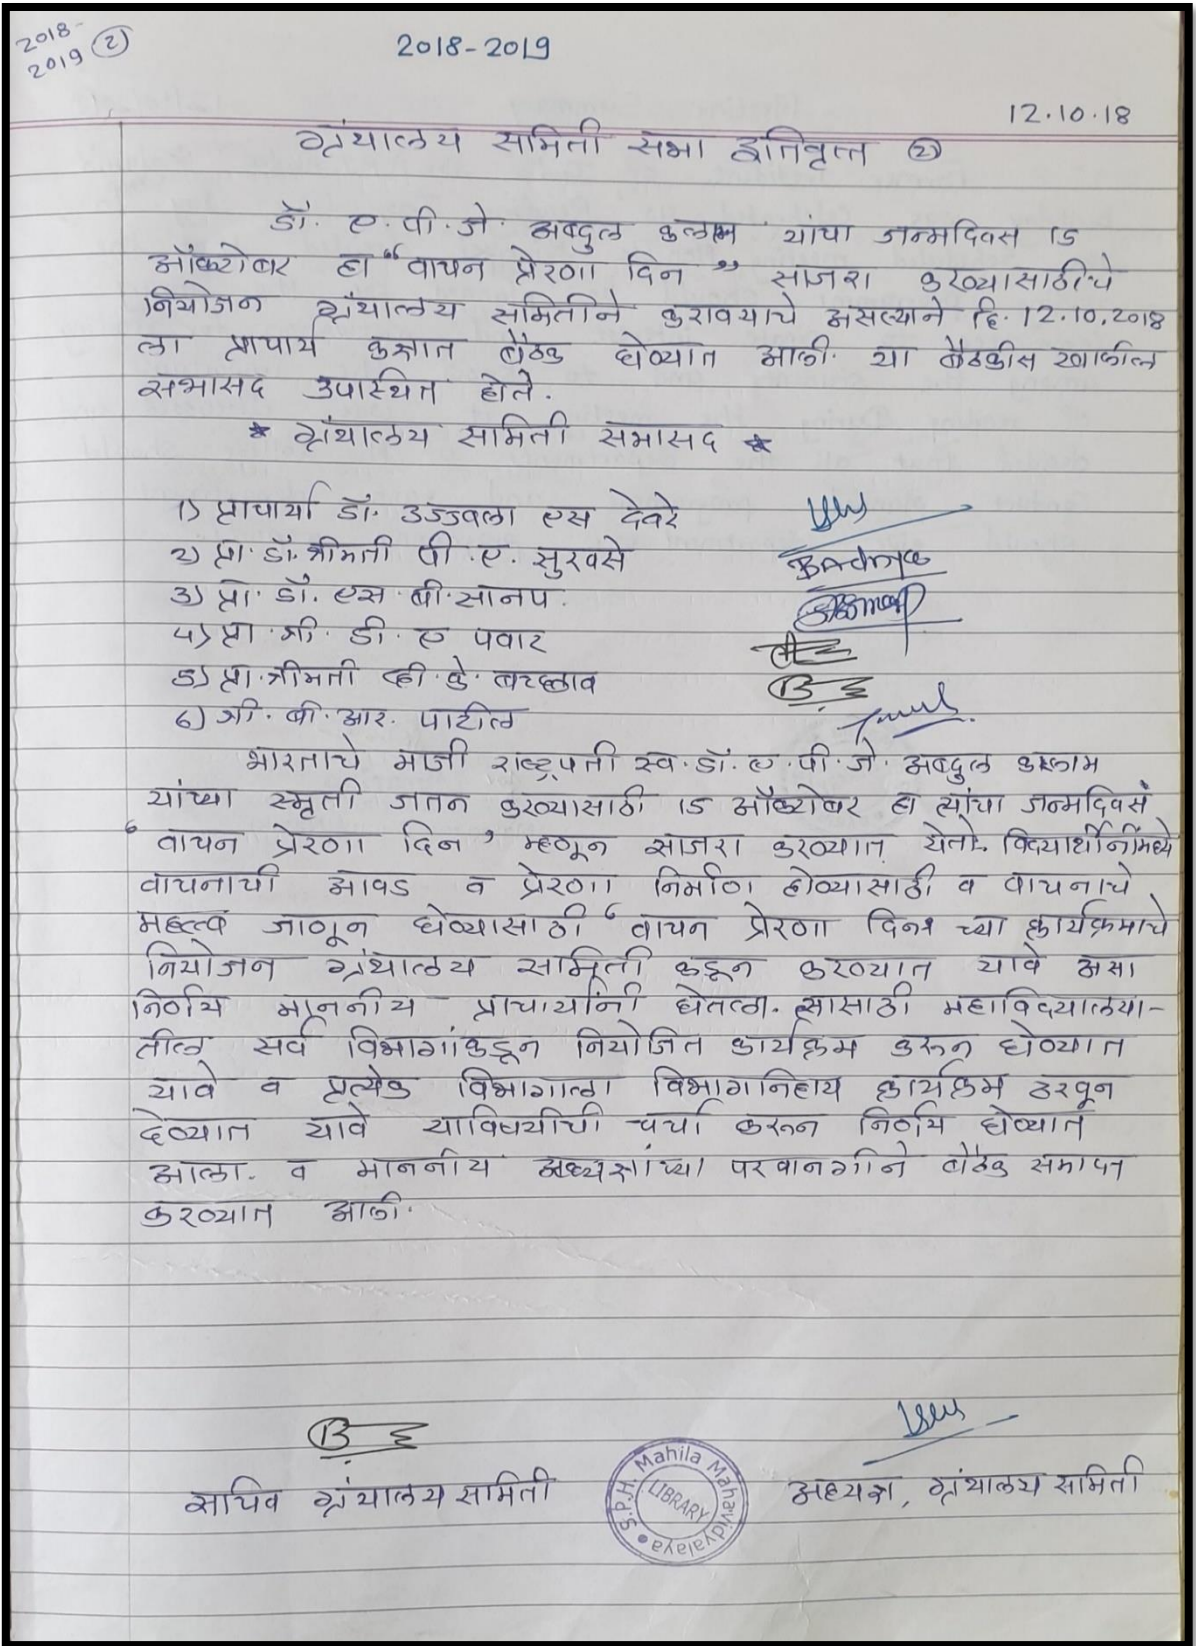 2018-
2019 (2)
2018-2019
12.10.18
ग्रंथालय समिती सभा इतिवृत्त (2)
डॉ. ए. पी. जे. अब्दुल कलाम यांचा जन्मदिवस 15
ऑक्टोबर हा "वाचन प्रेरणा दिन" साजरा करण्यासाठीचे
नियोजन ग्रंथालय समितीने करावयाचे असल्याने दि. 12.10.2018
ला प्राचार्य कक्षात बैठक घेण्यात आली. या बैठकीस खालील
सभासद उपास्थित होते.
* ग्रंथालय समिती सभासद *
1) प्राचार्या डॉ. उज्ज्वला एस देवरे
2) प्रा. डॉ. श्रीमती पी. ए. सुरवसे
3) प्रा. डॉ. एस. बी. सानप.
4) प्रा. श्री. डी. ए पवार
5) प्रा. श्रीमती व्ही. के. बच्छाव
6) श्री. बी. आर. पाटील
भारताचे माजी राष्ट्रपती स्व. डॉ. ए. पी. जे. अब्दुल कलाम
यांच्या स्मृती जतन करण्यासाठी 15 ऑक्टोबर हा त्यांचा जन्मदिवस
'वाचन प्रेरणा दिन' म्हणून साजरा करण्यात येतो. विद्यार्थीनींमध्ये
वाचनाची आवड व प्रेरणा निर्माण होण्यासाठी व वाचनाचे
महत्त्व जाणून घेण्यासाठी 'वाचन प्रेरणा दिन' च्या कार्यक्रमाचे
नियोजन ग्रंथालय समिती कडून करण्यात यावे असा
निर्णय माननीय प्राचार्यांनी घेतला. त्यासाठी महाविद्यालया-
तील सर्व विभागांकडून नियोजित कार्यक्रम करून घेण्यात
यावे व प्रत्येक विभागाला विभागनिहाय कार्यक्रम ठरवून
देण्यात यावे याविषयीची चर्चा करून निर्णय घेण्यात
आला. व माननीय अध्यक्षांच्या परवानगीने बैठक समाप्त
करण्यात आली.
सचिव ग्रंथालय समिती
S.P.H. Mahila Mahavidyalaya
LIBRARY
अध्यक्ष, ग्रंथालय समिती